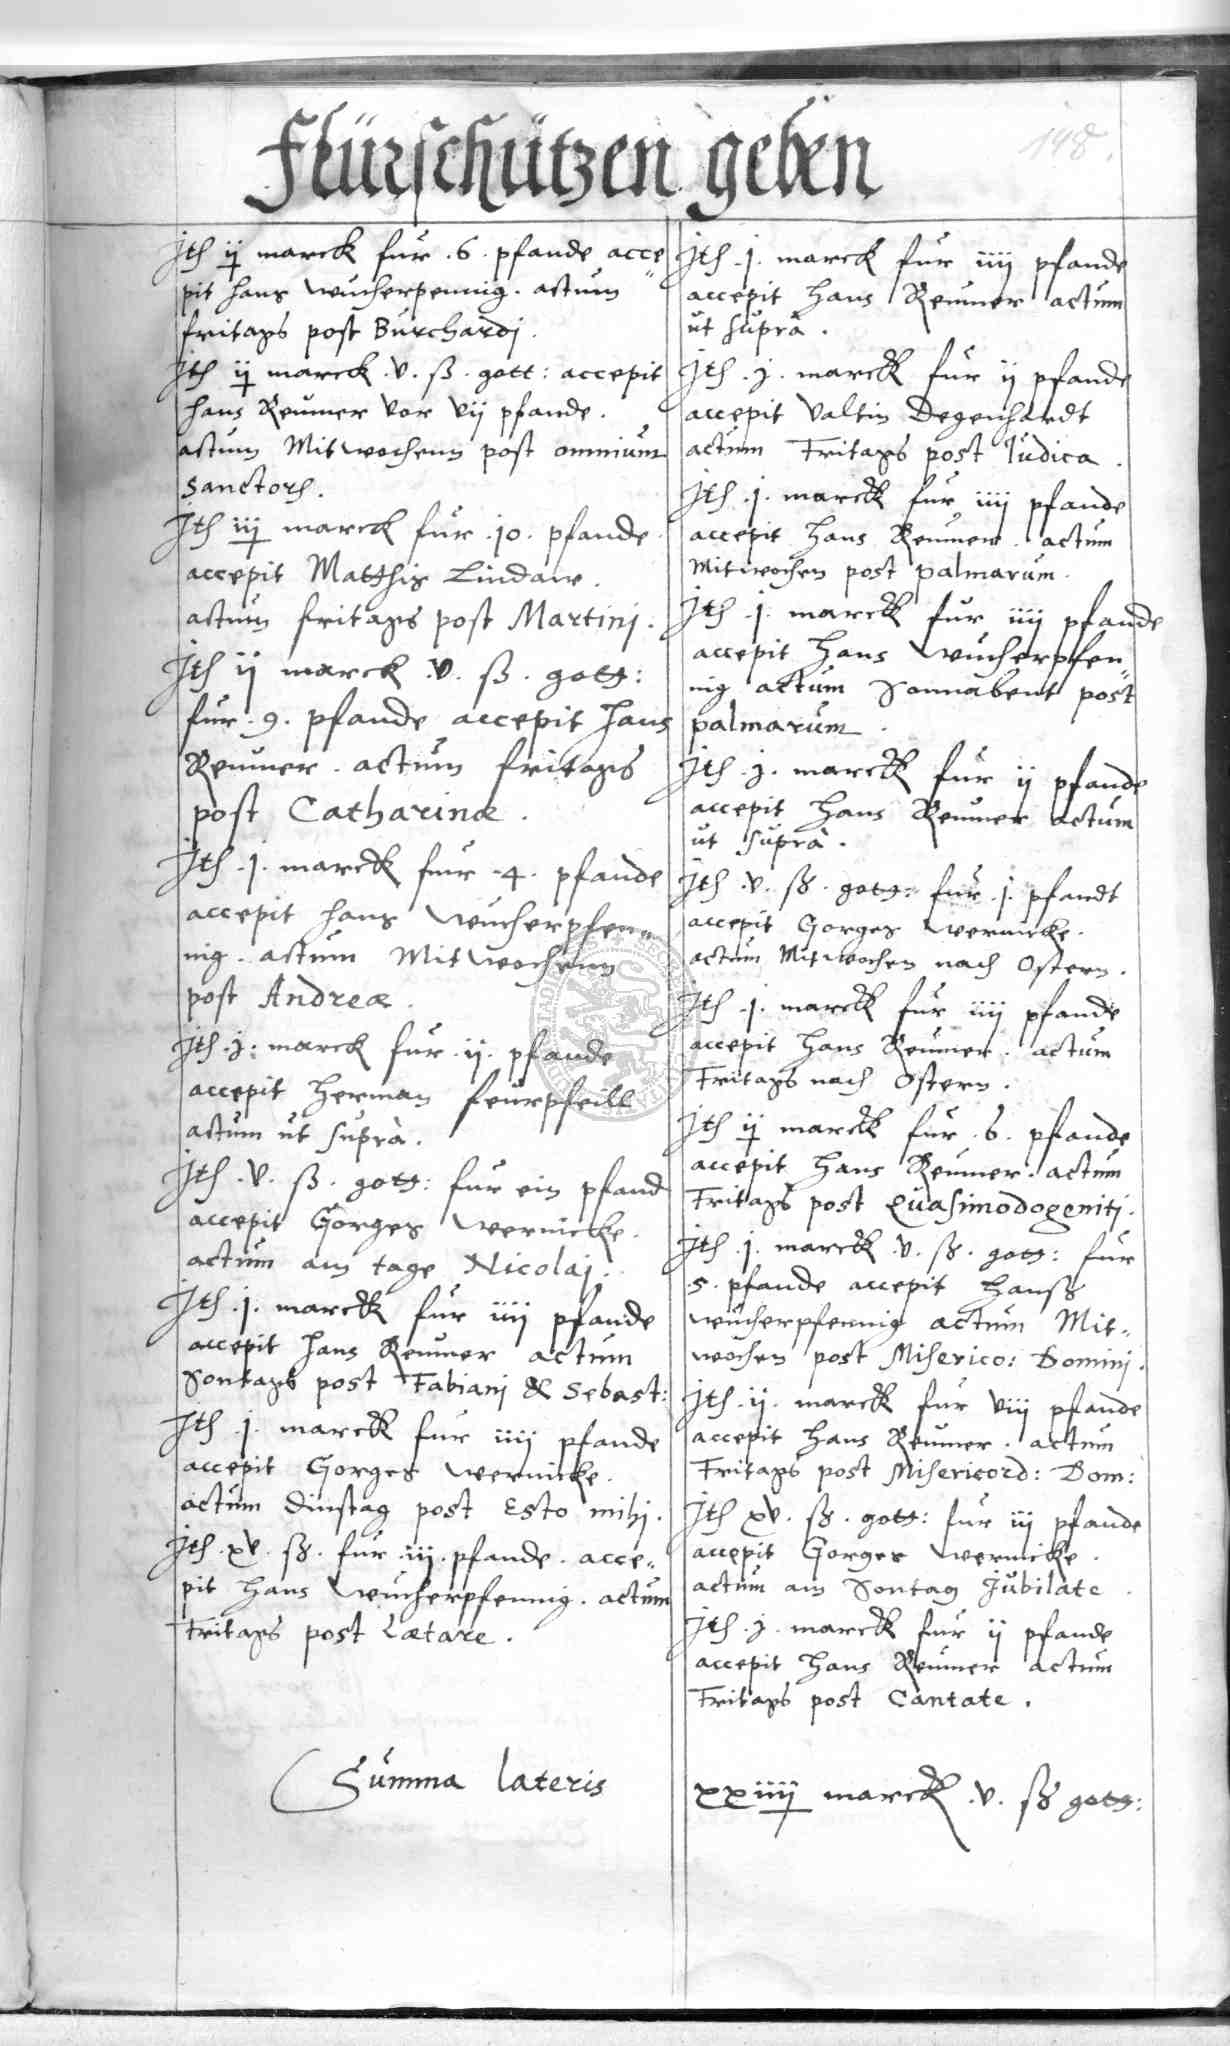 Flurschützen geben
148.
Jtħ ij marck fur .6. pfande acce„
pit hans wucherpennig. actum
fritags post Burchardj.
Jtħ ij marck .v. ß. gott: accepit
hans Reumer vor vij pfande.
actum Mitwochenn post omnium
sanctorħ.
Jtħ iij marck fur .10. pfande.
accepit Matthis Lindaw.
actum fritags post Martinj.
Jtħ ij marck .v. ß. gotts:
fur .9. pfande accepit hans
Reumer. actum fritags
post Catharinæ.
Jtħ .j. marck fur .4. pfande
accepit hans wucherpfen„
nig. actum Mitwochenn
post Andreæ.
Jtħ .j. marck fur .ij. pfande
accepit Herman feurpfeill
actum ut suprà.
Jtħ .v. ß. gotts: fur ein pfand
accepit Gorges wernicke.
actum am tage Nicolaj.
Jtħ .j. marck fur iiij pfande
accepit hans Reumer actum
Sontags post Fabianj & Sebast:
Jtħ .j. marck fur iiij pfande
accepit Gorges wernicke.
actum dinstag post Esto mihj.
Jtħ .xv. ß. fur .iij. pfande. acce„
pit hans wucherpfennig. actum
Fritags post Lætare.
Jtħ .j. marck fur iiij pfande
accepit Hans Reumer actum
ut suprà.
Jtħ .j. marck fur ij pfande
accepit Valtin Degenhardt
actum Fritags post Iudica.
Jtħ .j. marck fur iiij pfande
accepit Hans Reumer. actum
Mitwochen post palmarum.
Jtħ .j. marck fur iiij pfande
accepit Hans wucherpfen„
nig actum Sonnabent post
palmarum.
Jtħ .j. marck fur ij pfande
accepit Hans Reumer actum
ut suprà.
Jtħ .v. ß. gotts: fur .j. pfandt
accepit Gorges wernicke.
actum Mitwochen nach Ostern.
Jtħ .j. marck fur iiij pfande
accepit Hans Reumer. actum
Fritags nach Ostern.
Jtħ ij marck fur .6. pfande
accepit Hans Reumer. actum
Fritags post Quasimodogenitj.
Jtħ .j. marck .v. ß. gotts: fur
.5. pfande accepit Hanss
wucherpfennig actum Mit„
wochen post Miserico: Dominj.
Jtħ .ij. marck fur viij pfande
accepit Hans Reumer. actum
Fritags post Misericord: Dom:
Jtħ xv. ß. gotts: fur iij pfande
accepit Gorges wernicke.
actum am Sontag Jubilate.
Jtħ .j. marck fur ij pfande
accepit Hans Reumer actum
Fritags post Cantate.
Summa lateris
xxiiij marck .v. ß gotts: